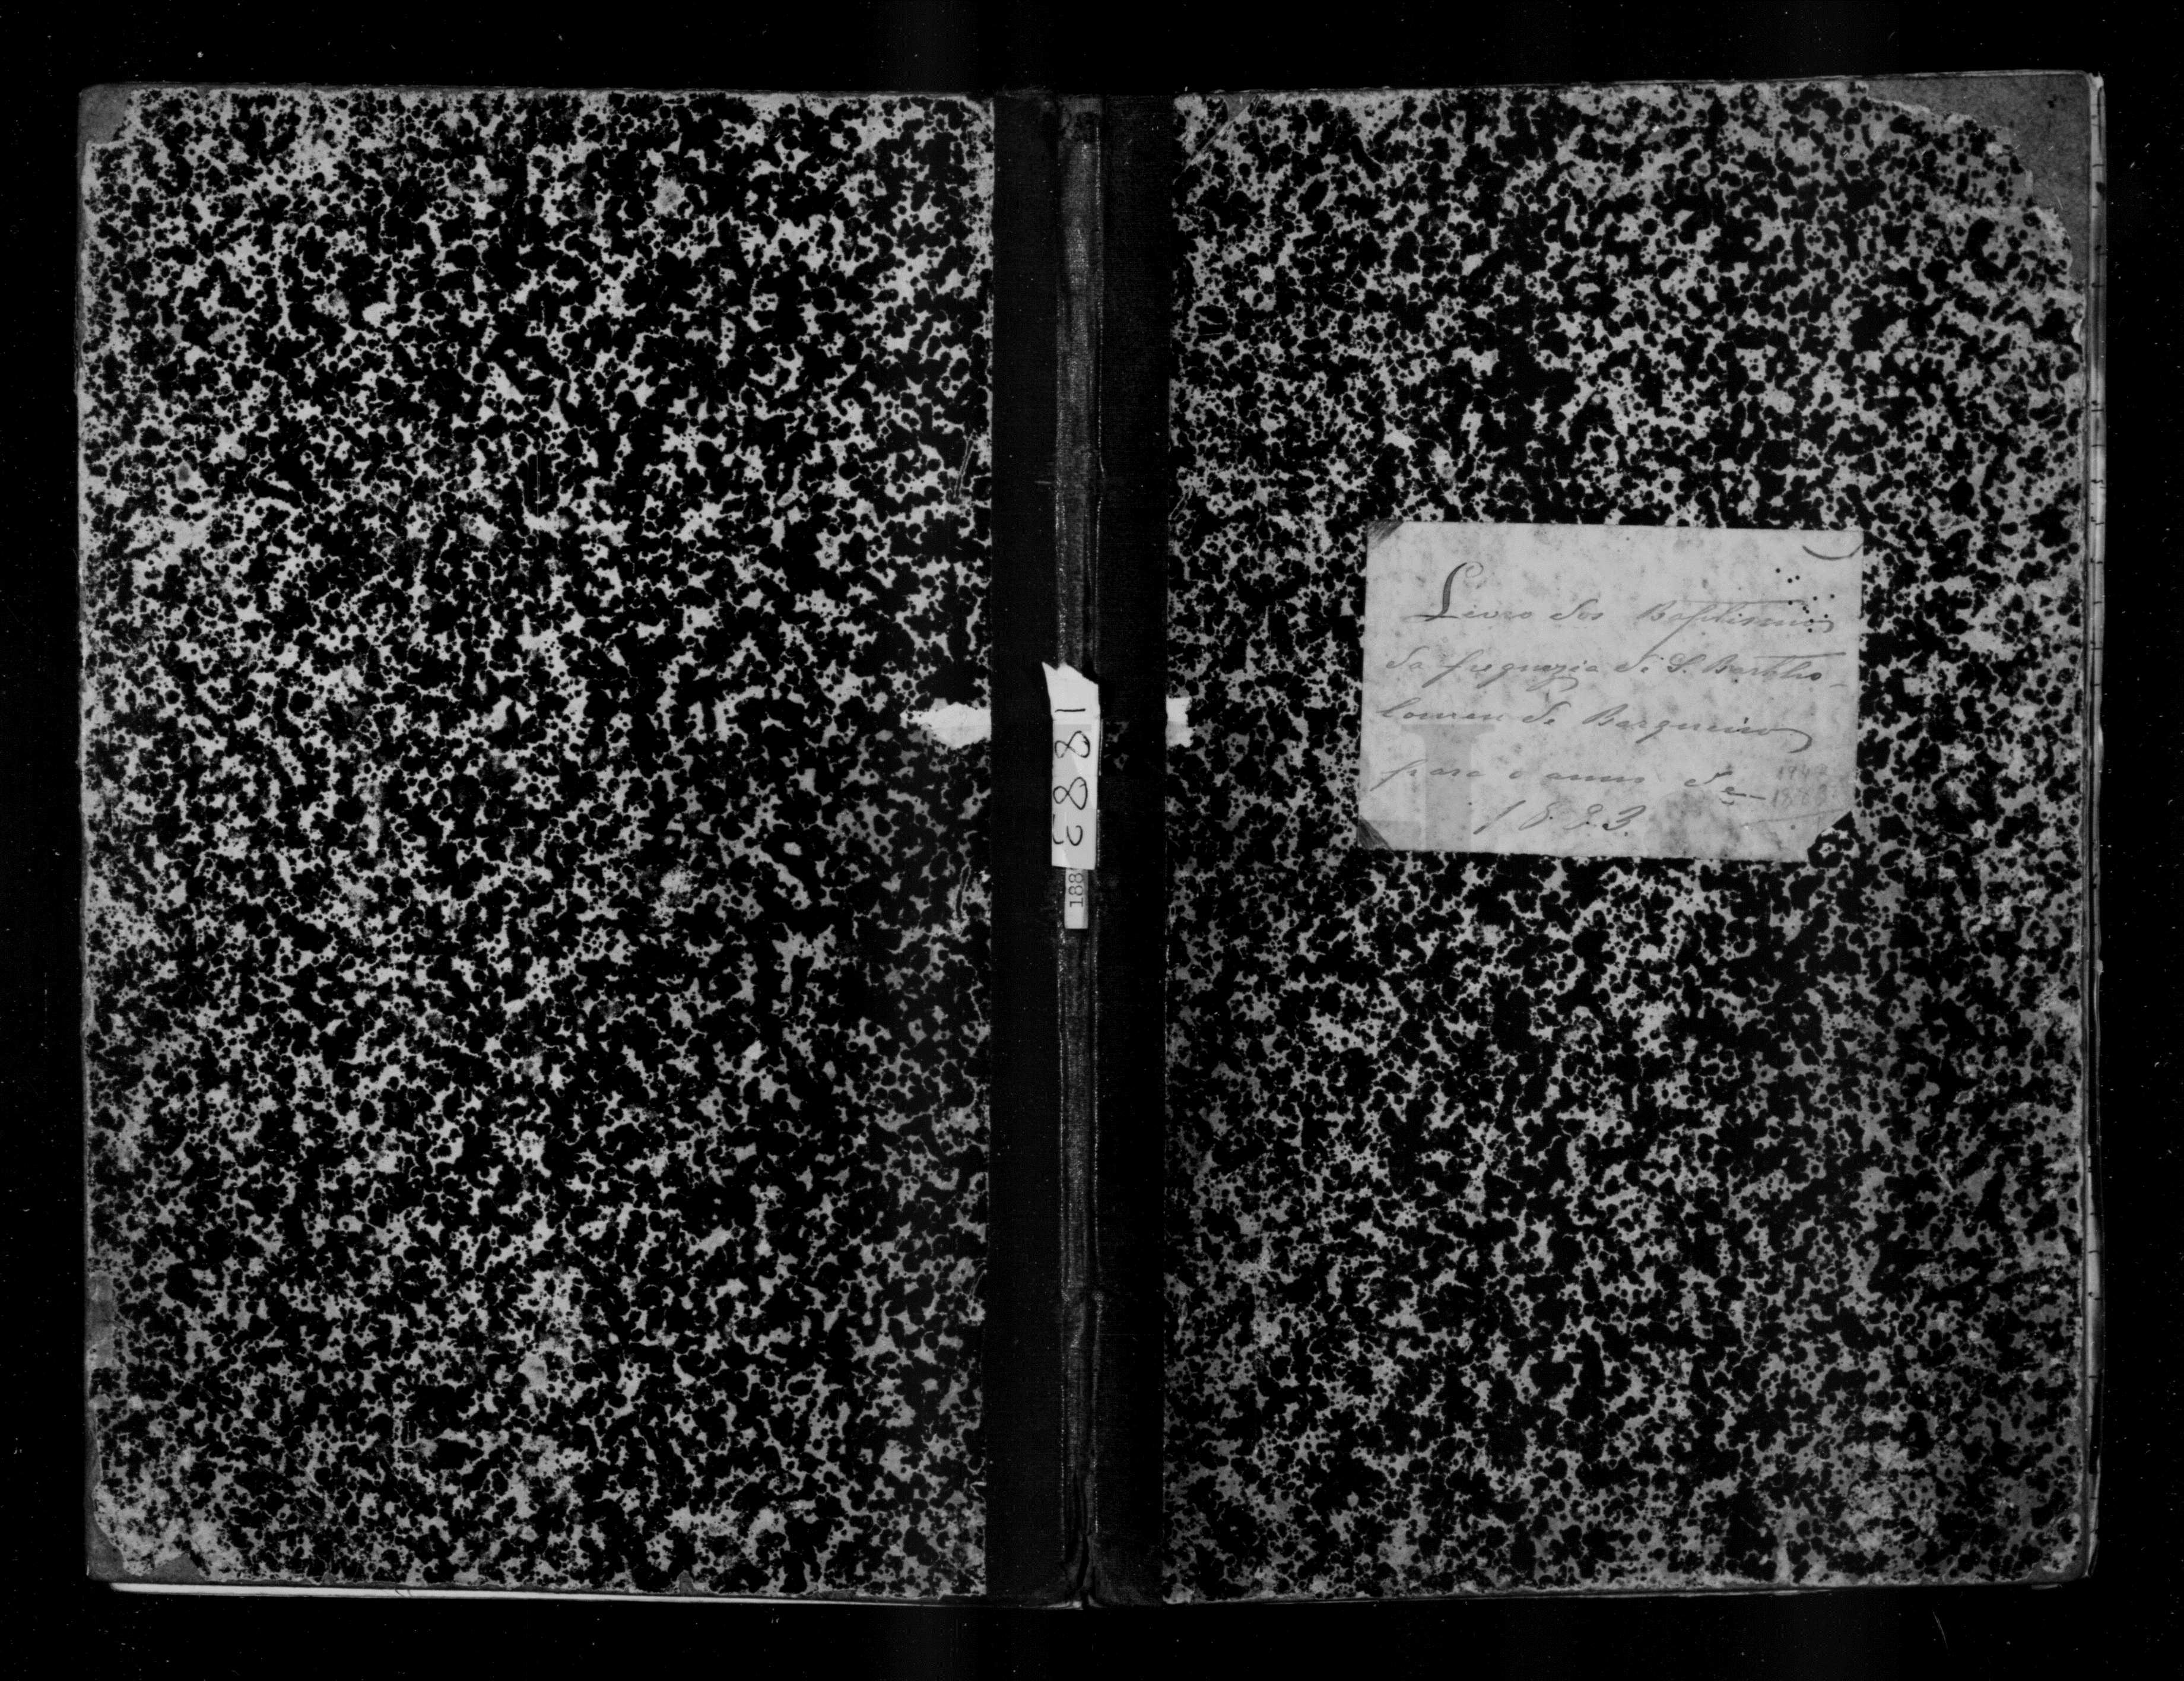 Livro dos Baptismos
da freguezia de S. Bartho-
lomeu de Barqueiros
para o anno de
1883
1883
188